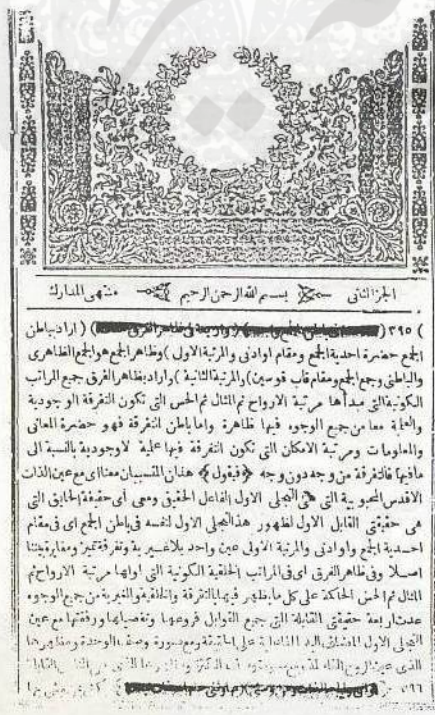 الجزء الثاني بسم الله الرحمن الرحيم منتهى المدارك
٣٩٥ ( اراد بباطن
الجمع حضرة احدية الجمع ومقام اوادنى والمرتبة الاول ) وظاهر الجمع هو الجمع الظاهرى
والباطنى وجمع الجمع ومقام قاب قوسين ) والمرتبة الثانية ) واراد بظاهر الفرق جميع المراتب
الكونية التى مبدأها مرتبة الارواح ثم المثال ثم الحس التى تكون التفرقة الوجودية
والعلمية معا من جميع الوجوه فيها ظاهرة واما باطن التفرقة فهو حضرة المعانى
والمعلومات ومرتبة الامكان التى تكون التفرقة فيها علمية لا وجودية بالنسبة الى
مافيها فالتفرقة من وجه دون وجه ﴿ فيقول ﴾ هذان المنتسبان معنااى مع عين الذات
الاقدس المحبوبية التى هى التجلى الاول الفاعل الحقيقى ومعى اى حقيقة الحقايق التى
هى حقيقتى القابل الاول لظهور هذا التجلى الاول لنفسه فى باطن الجمع اى فى مقام
احدية الجمع واوادنى والمرتبة الاولى عين واحد بلا غيرية وتفرقة تميز ومغايرة بيننا
اصلا وفى ظاهر الفرق اى فى المراتب الخلقية الكونية التى اولها مرتبة الارواح ثم
المثال ثم الحس الحاكمة على كل ما يظهر فيها بالتفرقة والخلقية والغيرية من جميع الوجوه
عدت اربعة حقيقتى القابلة التى جميع القوابل فروعها وتفصيلها ورقتها مع عين
التجلى الاول المضاف اليه الفاعلية على الحقيقة ومع صورة وصف الوحدة ومظهرها
الذى عين الروح
٥٩٦